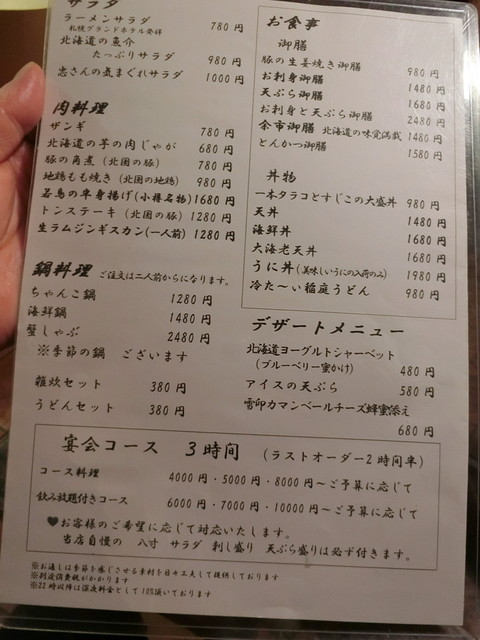 サラダ
ラーメンサラダ 780円
札幌グランドホテル発祥
北海道の魚介
たっぷりサラダ 980円
忠さんの気まぐれサラダ 1000円
肉料理
ザンギ 780円
北海道の芋の肉じゃが 680円
豚の角煮(北国の豚) 780円
地鶏もも焼き(北国の地鶏) 980円
若鳥の半身揚げ(小樽名物)1680円
トンステーキ(北国の豚)1280円
生ラムジンギスカン(一人前)1280円
鍋料理 ご注文は二人前からになります。
ちゃんこ鍋 1280円
海鮮鍋 1480円
蟹しゃぶ 2480円
※季節の鍋 ございます
雑炊セット 380円
うどんセット 380円
お食事
御膳
豚の生姜焼き御膳 980円
お刺身御膳 1480円
天ぷら御膳 1680円
お刺身と天ぷら御膳 2480円
余市御膳 北海道の味覚満載 1480円
とんかつ御膳 1580円
丼物
一本タラコとすじこの大盛丼 980円
天丼 1480円
海鮮丼 1680円
大海老天丼 1680円
うに丼(美味しいうにの入荷のみ) 1980円
冷た~い稲庭うどん 980円
デザートメニュー
北海道ヨーグルトシャーベット
(ブルーベリー蜜かけ) 480円
アイスの天ぷら 580円
雪印カマンベールチーズ蜂蜜添え
680円
宴会コース 3時間 (ラストオーダー2時間半)
コース料理 4000円・5000円・8000円~ご予算に応じて
飲み放題付きコース 6000円・7000円・10000円~ご予算に応じて
♥お客様のご希望に応じて対応いたします。
当店自慢の 八寸 サラダ 刺し盛り 天ぷら盛りは必ず付きます。
※お通しは季節を感じさせる素材を日々工夫して提供しております
※別途消費税がかかります
※22時以降は深夜料金として10%頂いております